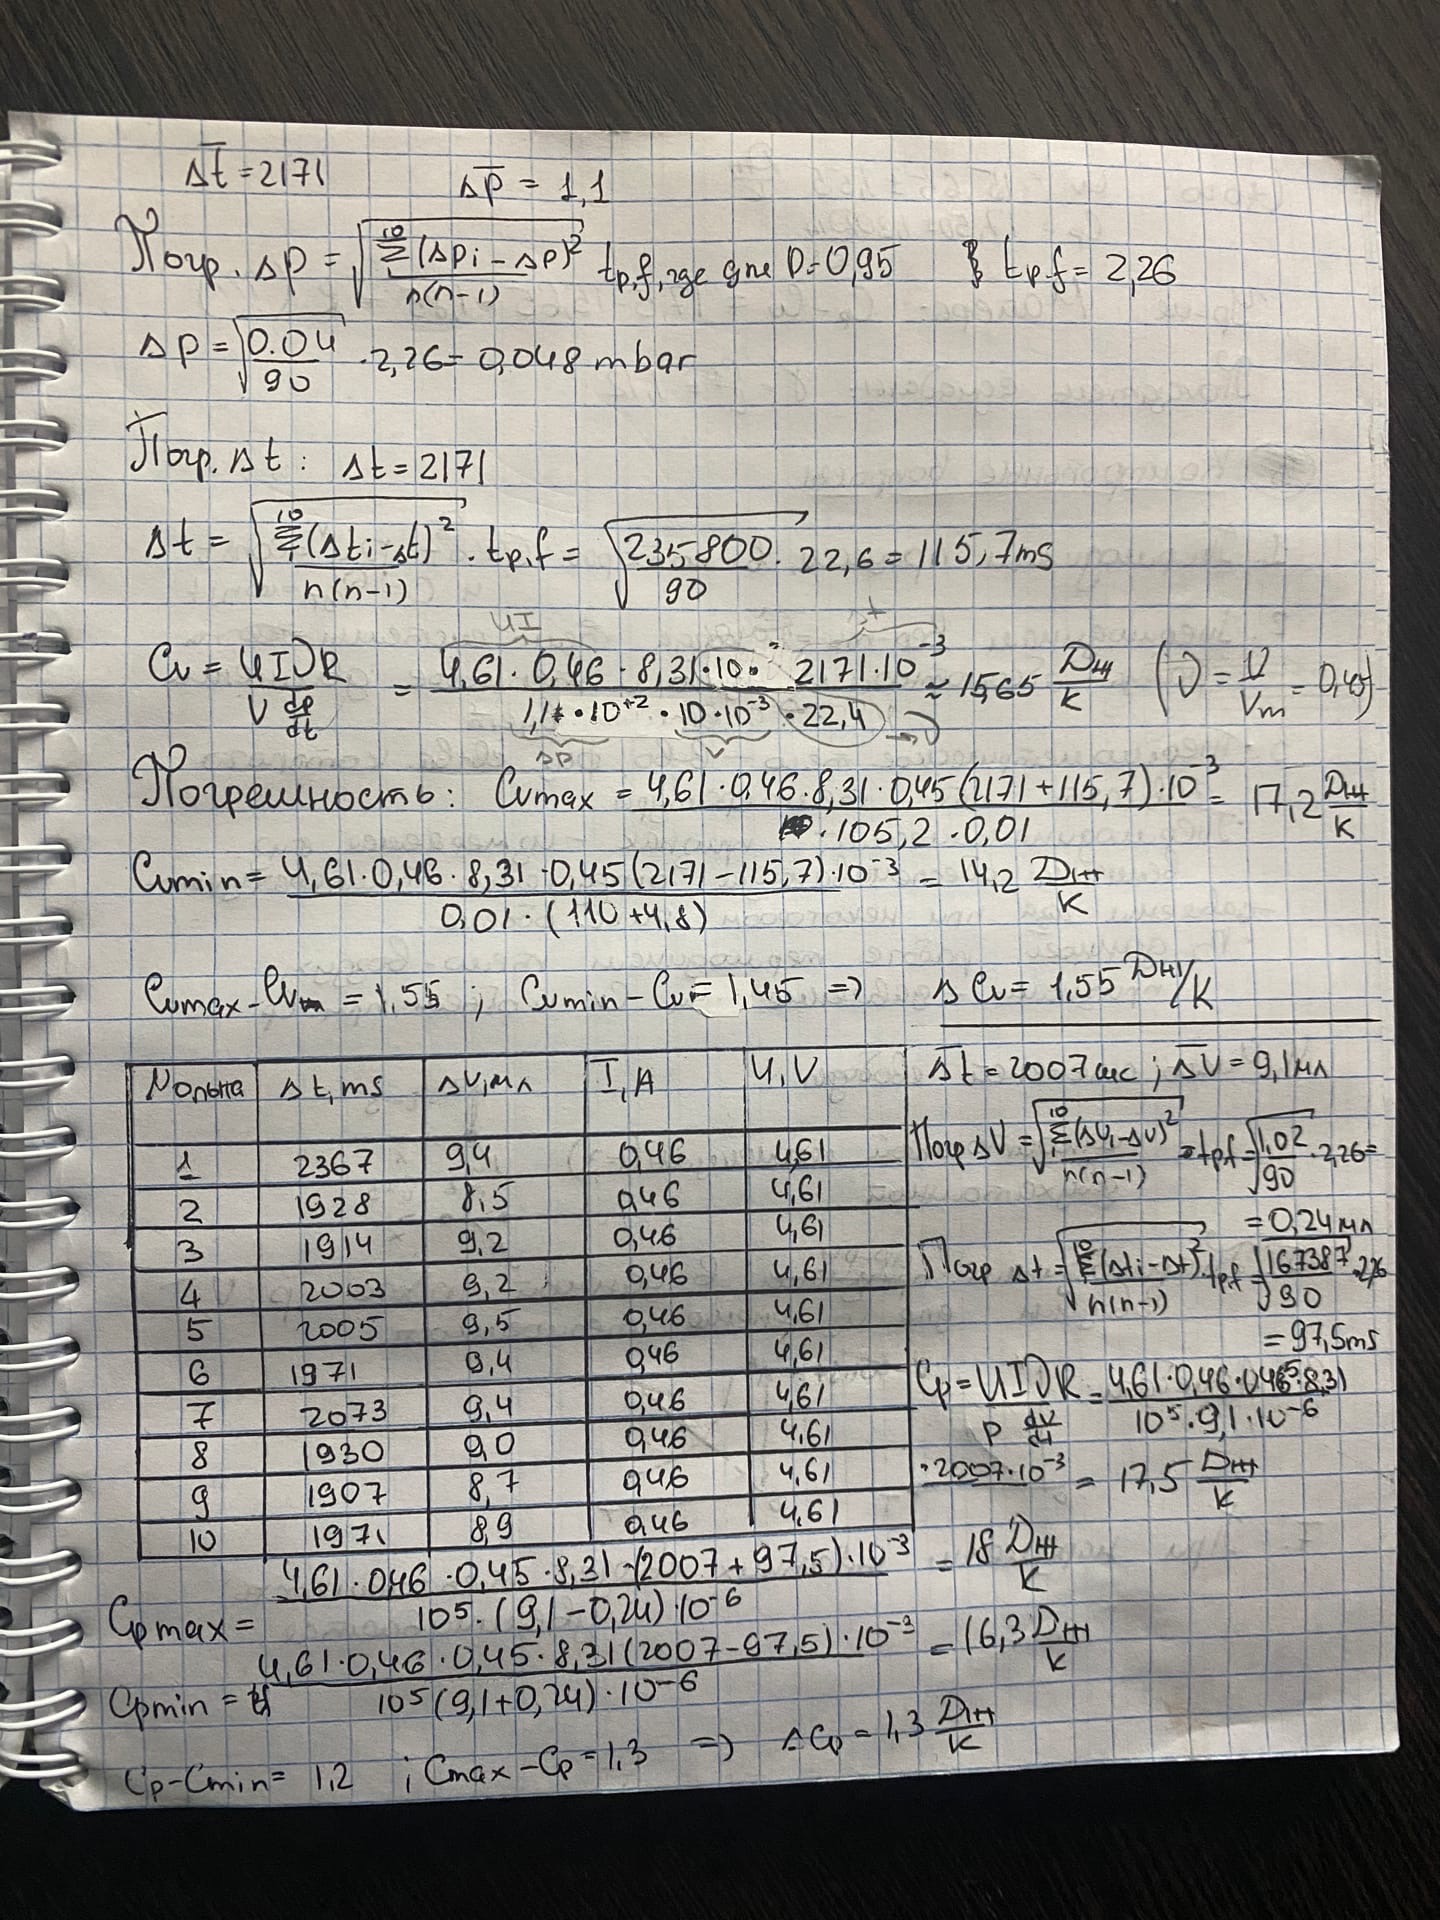 Δt̅ = 2171    Δp̅ = 1,1
Погр. Δp = √(Σ¹⁰(Δpi – Δp)² / n(n–1)) tp,f, где для P=0,95    tp,f = 2,26
Δp = √(0.04 / 90) · 2,26 = 0,048 mbar
Погр. Δt: Δt = 2171
Δt = √(Σ¹⁰₁(Δti – Δt)² / n(n–1)) · tp,f = √(235800 / 90) · 22,6 = 115,7 ms
UI    t
Cv = UIνR / (V dp/dt) = 4,61 · 0,46 · 8,31 · 10 · 2171 · 10⁻³ / (1,1 · 10⁺² · 10 · 10⁻³ · 22,4) ≈ 15,65 Дж/К (ν = V/Vm = 0,45)
Δp    V    ν
Погрешность: Cvmax = 4,61 · 0,46 · 8,31 · 0,45 (2171 + 115,7) · 10⁻³ / (· 105,2 · 0,01) = 17,2 Дж/К
Cvmin = 4,61 · 0,46 · 8,31 · 0,45 (2171 – 115,7) · 10⁻³ / (0,01 · (110 + 4,8)) = 14,2 Дж/К
Cvmax – Cv = 1,55 ; Cvmin – Cv = 1,45 => ΔCv = 1,55 Дж/К
№ольна | Δt, ms | ΔV, мл | I, A | U, V
1 | 2367 | 9,4 | 0,46 | 4,61
2 | 1928 | 8,5 | 0,46 | 4,61
3 | 1914 | 9,2 | 0,46 | 4,61
4 | 2003 | 9,2 | 0,46 | 4,61
5 | 2005 | 9,5 | 0,46 | 4,61
6 | 1971 | 9,4 | 0,46 | 4,61
7 | 2073 | 9,4 | 0,46 | 4,61
8 | 1930 | 9,0 | 0,46 | 4,61
9 | 1907 | 8,7 | 0,46 | 4,61
10 | 1971 | 8,9 | 0,46 | 4,61
Δt̅ = 2007 мс ; ΔV̅ = 9,1 мл
Погр ΔV = √(Σ¹⁰₁(ΔVi – ΔV)² / n(n–1)) · tpf = √(1.02 / 90) · 2,26 =
= 0,24 мл
Погр Δt = √(Σ¹⁰(Δti – Δt)² / n(n–1)) · tpf = √(167387 / 90) · 2,26
= 97,5 ms
Cp = UIνR / (p dV/dt) = 4,61 · 0,46 · 0,45 · 8,31 / (10⁵ · 9,1 · 10⁻⁶)
· 2007 · 10⁻³ = 17,5 Дж/К
Cpmax = 4,61 · 0,46 · 0,45 · 8,31 · (2007 + 97,5) · 10⁻³ / (10⁵ · (9,1 – 0,24) · 10⁻⁶) = 18 Дж/К
Cpmin = 4,61 · 0,46 · 0,45 · 8,31 (2007 – 97,5) · 10⁻³ / (10⁵ (9,1 + 0,24) · 10⁻⁶) = 16,3 Дж/К
Cp – Cmin = 1,2 ; Cmax – Cp = 1,3 => ΔCp = 1,3 Дж/К